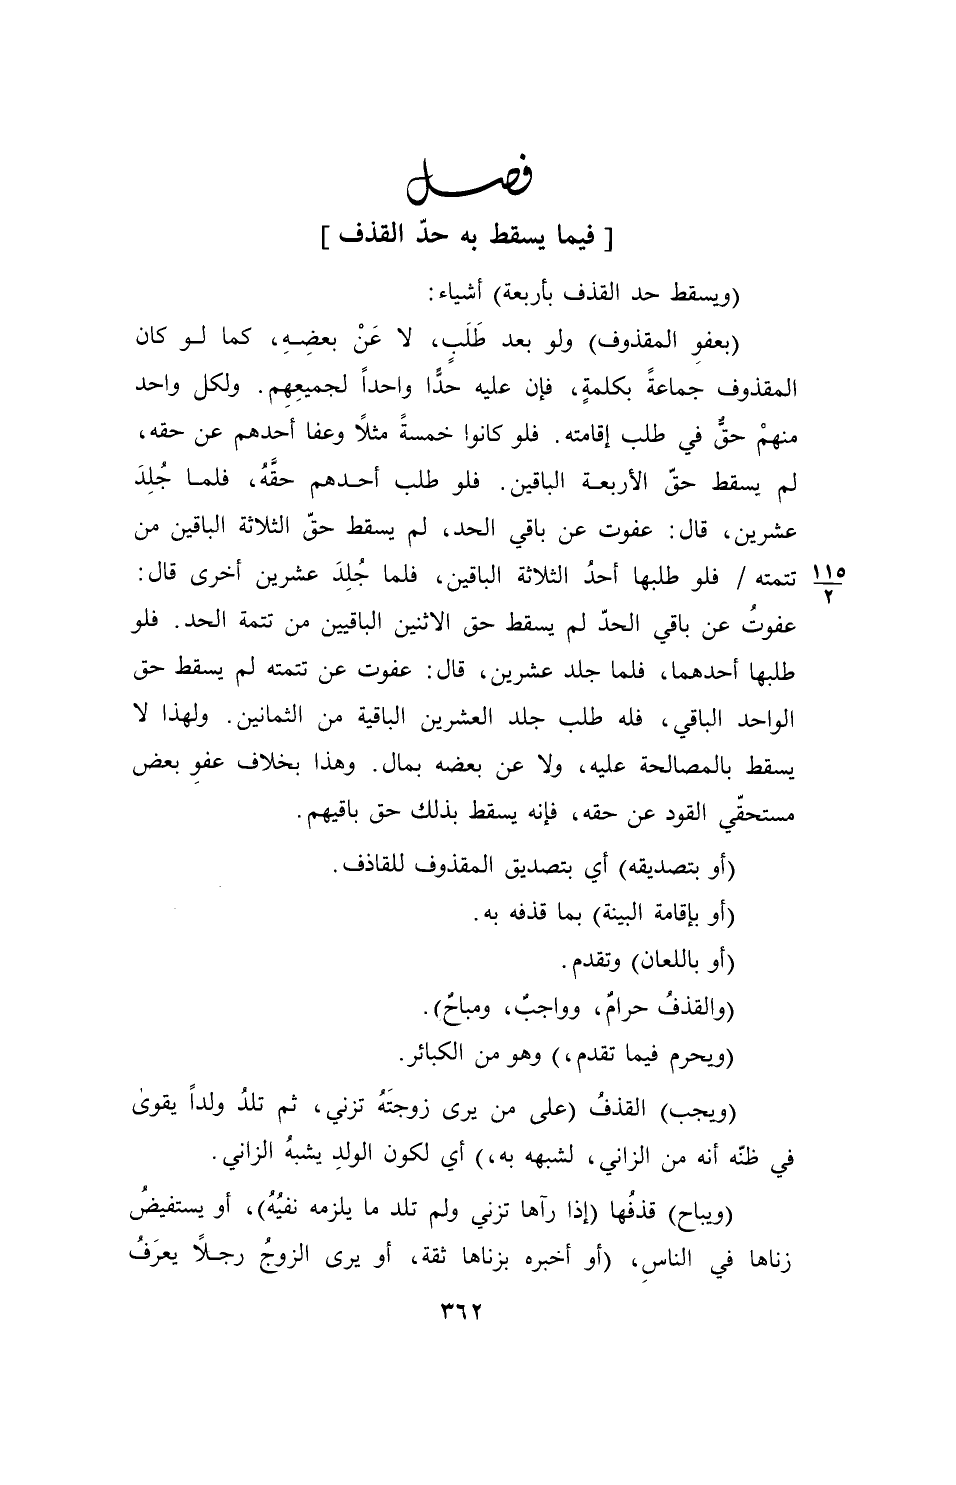 فصل
[ فيما يسقط به حدّ القذف ]
(ويسقط حد القذف بأربعة) أشياء:
(بعفوِ المقذوف) ولو بعد طَلَبٍ، لا عَنْ بعضِهِ، كما لو كان
المقذوف جماعةً بكلمةٍ، فإن عليه حدًّا واحداً لجميعِهم. ولكل واحد
منهمْ حقٌّ في طلب إقامته. فلو كانوا خمسةً مثلًا وعفا أحدهم عن حقه،
لم يسقط حقّ الأربعة الباقين. فلو طلب أحدهم حقَّهُ، فلما جُلِدَ
عشرين، قال: عفوت عن باقي الحد، لم يسقط حقّ الثلاثة الباقين من
تتمته / فلو طلبها أحدُ الثلاثة الباقين، فلما جُلِدَ عشرين أخرى قال: ١١٥/٢
عفوتُ عن باقي الحدّ لم يسقط حق الاثنين الباقيين من تتمة الحد. فلو
طلبها أحدهما، فلما جلد عشرين، قال: عفوت عن تتمته لم يسقط حق
الواحد الباقي، فله طلب جلد العشرين الباقية من الثمانين. ولهذا لا
يسقط بالمصالحة عليه، ولا عن بعضه بمال. وهذا بخلاف عفوِ بعض
مستحقّي القود عن حقه، فإنه يسقط بذلك حق باقيهم.
(أو بتصديقه) أي بتصديق المقذوف للقاذف.
(أو بإقامة البينة) بما قذفه به.
(أو باللعان) وتقدم.
(والقذفُ حرامٌ، وواجبٌ، ومباحٌ).
(ويحرم فيما تقدم،) وهو من الكبائر.
(ويجب) القذفُ (على من يرى زوجتَهُ تزني، ثم تلدُ ولداً يقوىٰ
في ظنّه أنه من الزاني، لشبهه به،) أي لكون الولدِ يشبهُ الزاني.
(ويباح) قذفُها (إذا رآها تزني ولم تلد ما يلزمه نفيُهُ)، أو يستفيضُ
زناها في الناسِ، (أو أخبره بزناها ثقة، أو يرى الزوجُ رجلًا يعرَفُ
٣٦٢